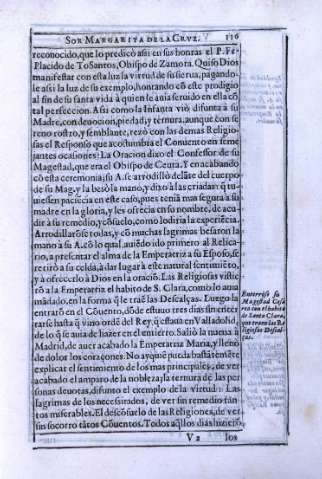 SOR MARGARITA DE LA CRVZ. 116
reconocido, que lo predicò assi en sus honras el P. Fr.
Placido de Tosantos, Obispo de Zamora. Quiso Dios
manifestar con esta luz la virtud de su sierua, pagando-
le assi la luz de su exemplo, honrando cõ este prodigio
al fin de su santa vida à quien le auia seruido en ella cõ
tal perfeccion. Assi como la Infanta viò difunta à su
Madre, con deuocion, piedad, y ternura, aunque con se
reno rostro, y semblante, rezò con las demas Religio-
sas el Responso que acostumbra el Conuento en seme
jantes ocasiones: La Oracion dixo el Confessor de su
Magestad, que era el Obispo de Ceuta. Y en acabando
cõ esta ceremonia; su A. se arrodillò delãte del cuerpo
de su Mag. y la besò la mano, y dixo à las criadas q̃ tu-
uiessen paciencia en este caso, pues teniã mas segura à su
madre en la gloria, y les ofrecia en su nombre, de acu-
dir à su remedio, y cõsuelo, como lo diria la experiẽcia.
Arrodillarõse todas, y cõ muchas lagrimas besaron la
mano à su A. cõ lo qual, auiẽdo ido primero al Relica-
rio, a presentar el alma de la Emperatriz a su Esposo, se
retirò a su celda, à dar lugar à este natural sentimiẽto,
y à ofrecerlo à Dios en la oraciõ. Las Religiosas vistie-
rõ a la Emperatriz el habito de S. Clara, como lo auia
mãdado, en la forma q̃ le traẽ las Descalças. Luego la
entrarõ en el Cõuento, dõde estuuo tres dias sin ente-
rrarse hasta q̃ vino ordẽ del Rey, q̃ estaua en Valladolid,
de lo q̃ se auia de hazer en el entierro. Saliò la nueua à
Madrid, de auer acabado la Emperatriz Maria, y llenò
de dolor los coraçones. No ay que pueda bastãtemẽte
explicar el sentimiento de los mas principales, de ver
acabado el amparo de la nobleza; la ternura de las per-
sonas deuotas, difunto el exemplo de la virtud: Las
lagrimas de los necessitados, de ver sin remedio tan-
tos miserables. El descõsuelo de las Religiones, de ver
sin socorro tãtos Cõuentos. Todos aq̃llos dias hiziero
V 2 los
Enterrose su
Magestad Cesa
rea con el habito
de Santa Clara,
que traen las Re
ligiosas Descal-
ças.